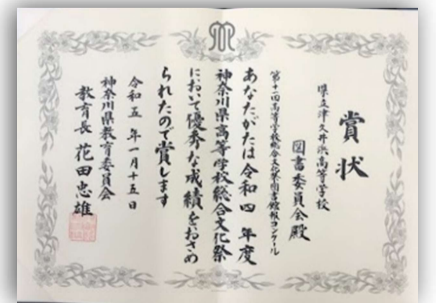 賞状
県立津久井浜高等学校
図書委員会殿
第十一回高等学校総合文化祭図書館報コンクール
あなたがたは令和四年度
神奈川県高等学校総合文化祭
において優秀な成績をおさめ
られたので賞します
令和五年一月十五日
神奈川県教育委員会
教育長 花田忠雄